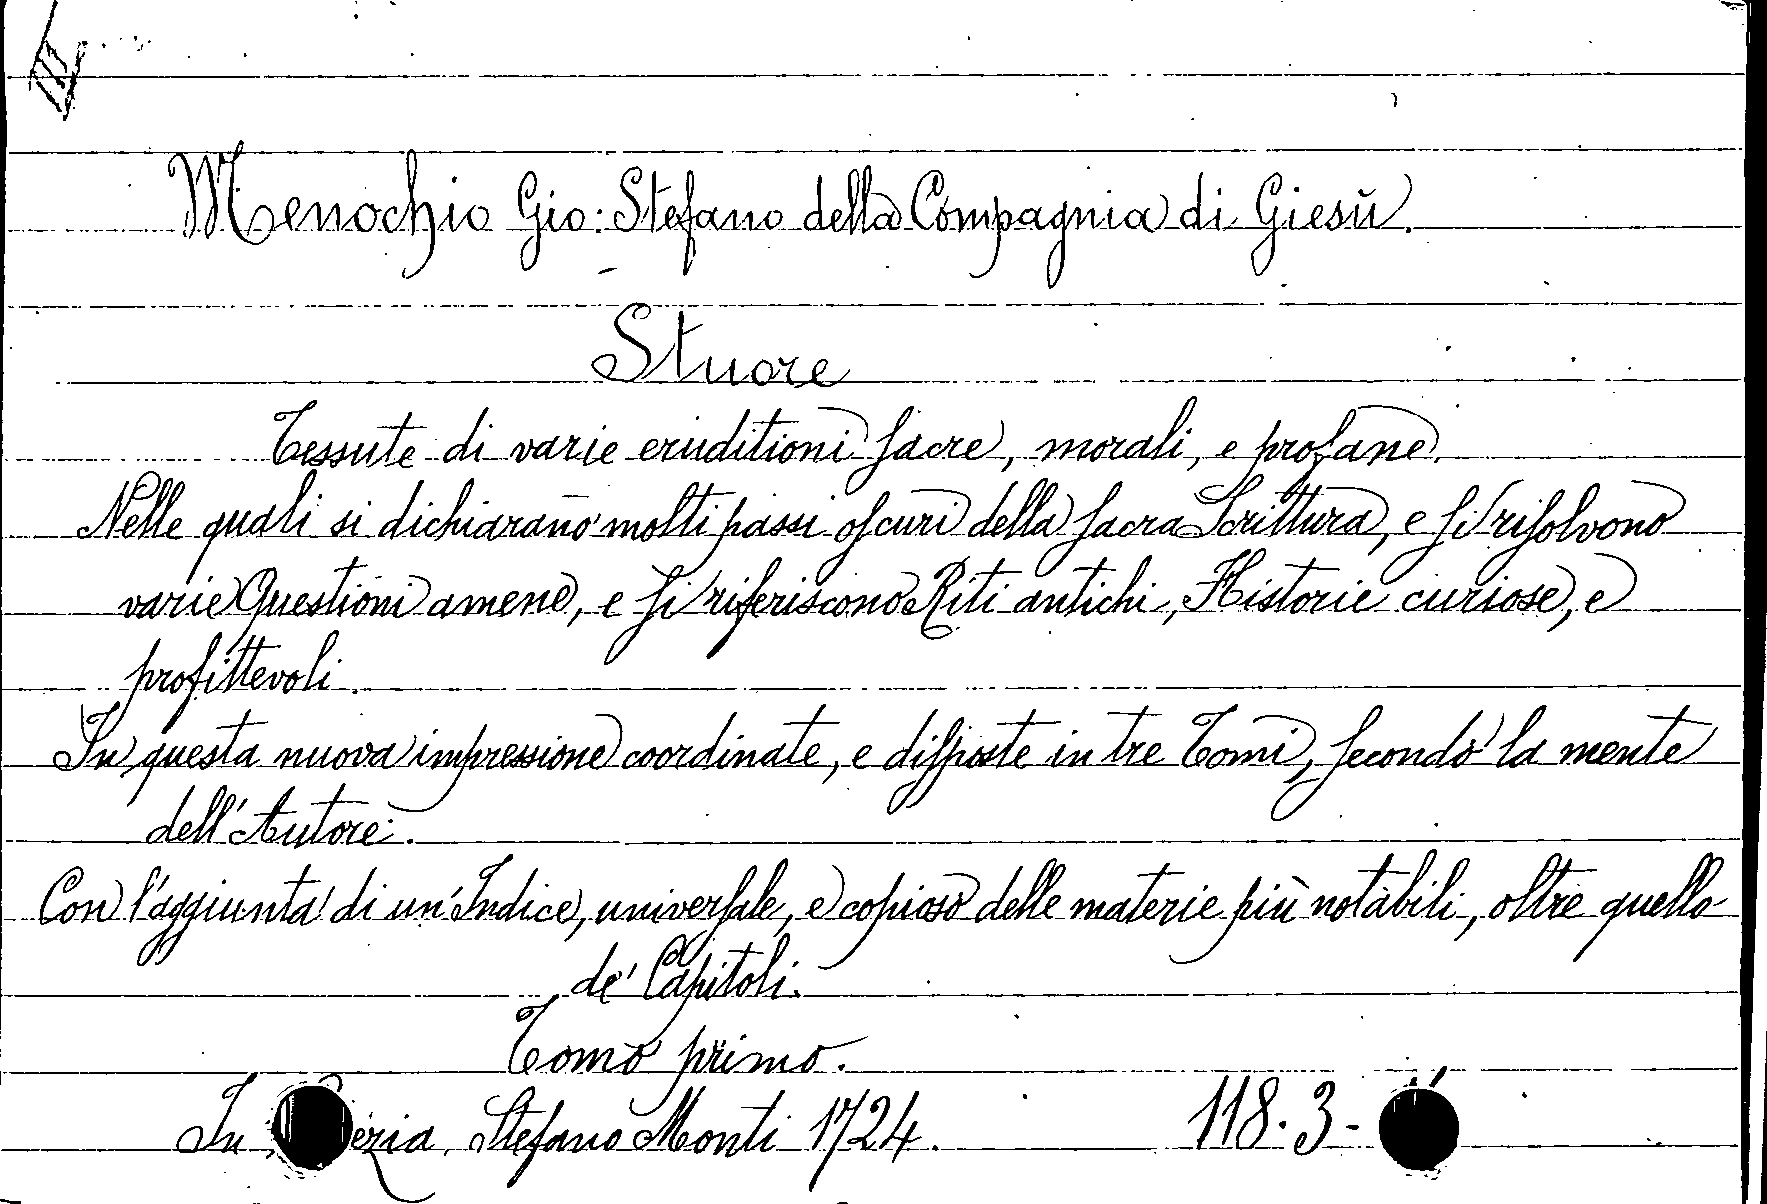 III
Menochio Gio: Stefano della Compagnia di Giesù.
Stuore
Tessute di varie eruditioni sacre, morali, e profane.
Nelle quali si dichiarano molti passi oscuri della sacra Scrittura, e si risolvono
varie Questioni amene, e si riferiscono Riti antichi, Historie curiose, e
profittevoli.
In questa nuova impressione coordinate, e disposte in tre Tomi, secondo la mente
dell'Autore.
Con l'aggiunta di un'Indice, universale, e copioso delle materie più notabili, oltre quello
de' Capitoli.
Tomo primo.
In ezia, Stefano Monti 1724. 118.3-